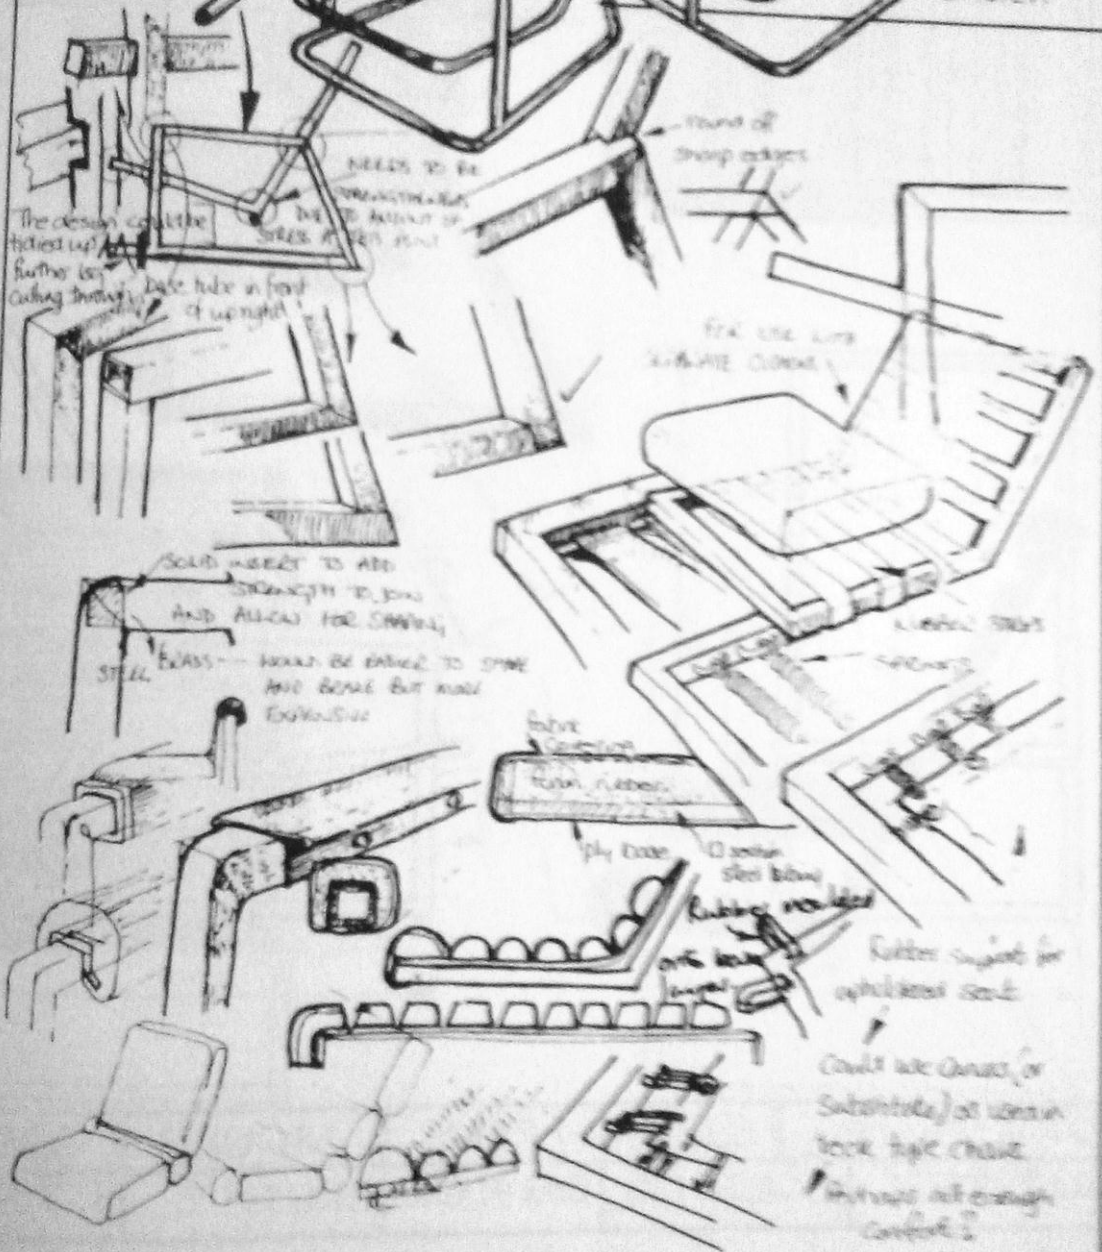 round of
sharp edges
NEEDS TO BE
STRENGTHENED
DUE TO AMOUNT OF
STRESS AT THIS POINT
The design could be
tidied up
further by
cutting through
base tube in front
of upright
FOR USE WITH
SEPARATE CUSHIONS
SOLID INSERT TO ADD
STRENGTH TO JOIN
AND ALLOW FOR SHAPING
STEEL
BRASS - WOULD BE EASIER TO SHAPE
AND BRAZE BUT MORE
EXPENSIVE
RUBBER STRAPS
SPRINGS
fabric
covering
foam rubber
ply base
section
steel
Rubber moulded
Rubber support for
upholstered seat
Could use Canvas (or
Substitute) as used in
deck type chair
Perhaps not enough
comfort?